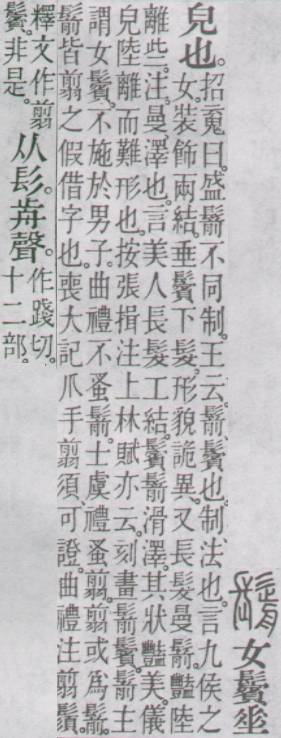 鬋女鬢𡍮
皃也。
招䰟曰。盛鬋不同制。王云。鬋、鬢也。制、法也。言九侯之
女。裝飾兩結。垂鬢下髮。形貌詭異。又長髮曼鬋。豔陸
離些。注。曼澤也。言美人長髮工結。鬢鬋滑澤。其狀豔美。儀
皃陸離而難形也。按張揖注上林賦亦云。刻畫鬋鬢。鬋主
謂女鬢。不施於男子。曲禮不蚤鬋。士虞禮蚤翦。翦或爲鬋。
鬋皆翦之假借字也。喪大記爪手翦須。可證。曲禮注翦鬚。
釋文作翦
鬢。非是。
从髟。歬聲。
作踐切。
十二部。